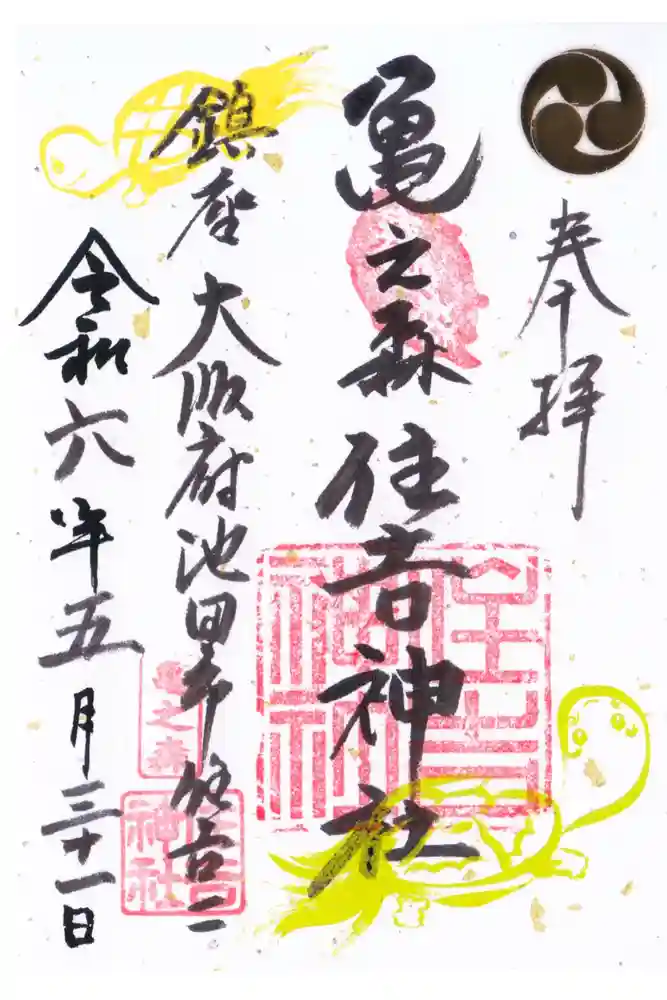 奉拝
亀之森住吉神社
鎮座大阪府池田市住吉二
令和六年五月三十一日
住吉
神社
亀之森
住吉
神社